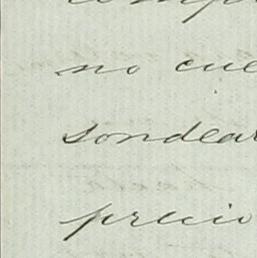 no cue
sondear
precio